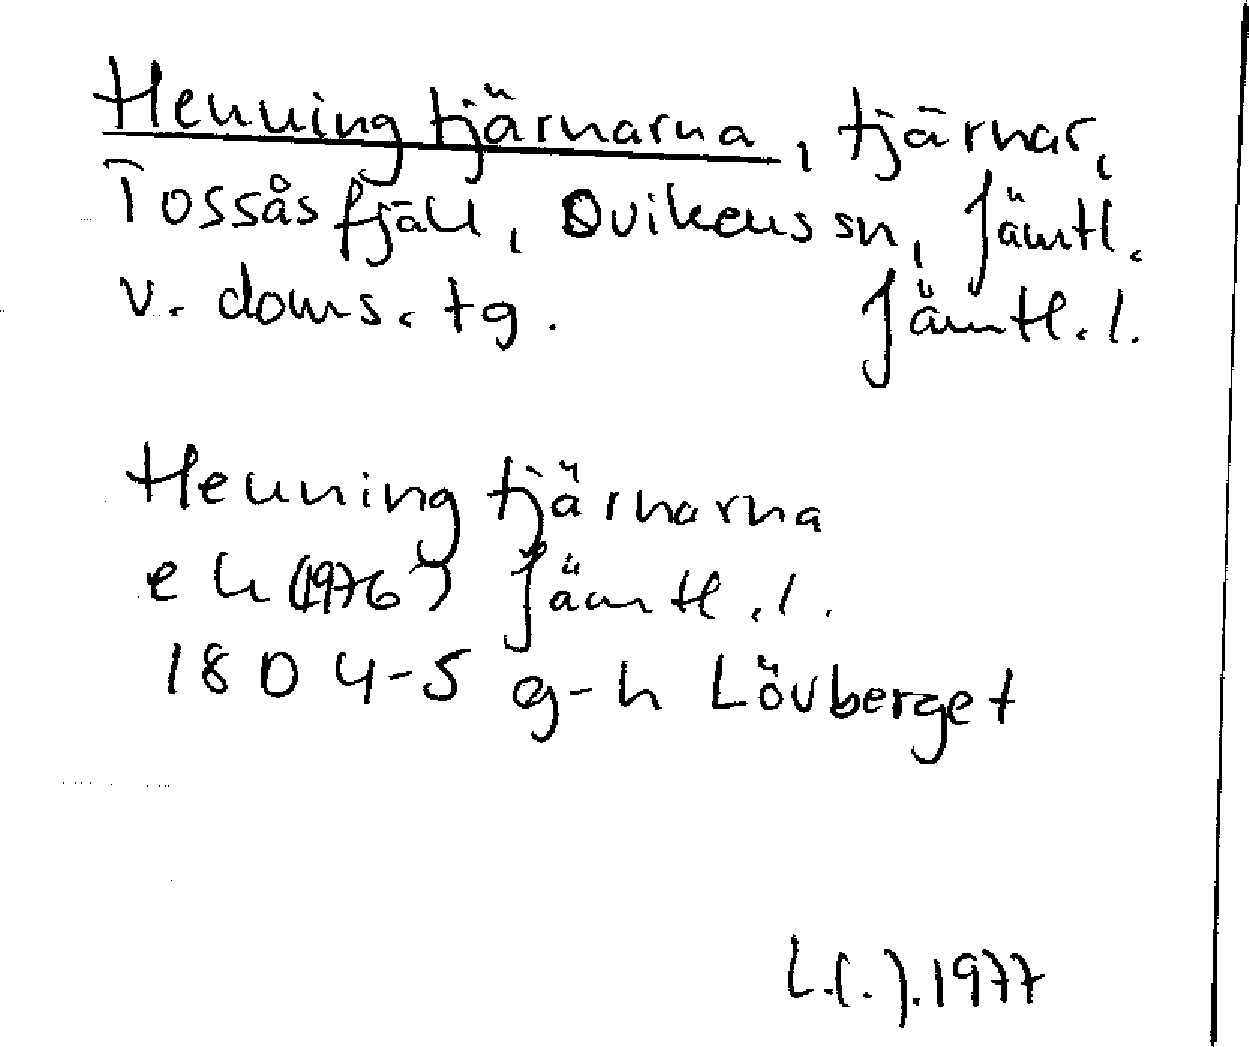 Henningtjärnarna, tjärnar,
Tossåsfjäll, Ovikens sn, Jämtl.
v. doms. tg. Jämtl. l.
Henningtjärnarna
ek (1976) Jämtl. l.
18D 4-5 g-h Lövberget
L.(.). 1977